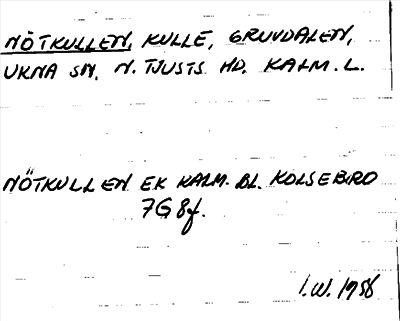 NÖTKULLEN, KULLE, GRUVDALEN,
UKNA SN, N. TJUSTS HD. KALM. L.
NÖTKULLEN EK KALM. BL. KOLSEBRO
7G 8f.
I.W. 1958